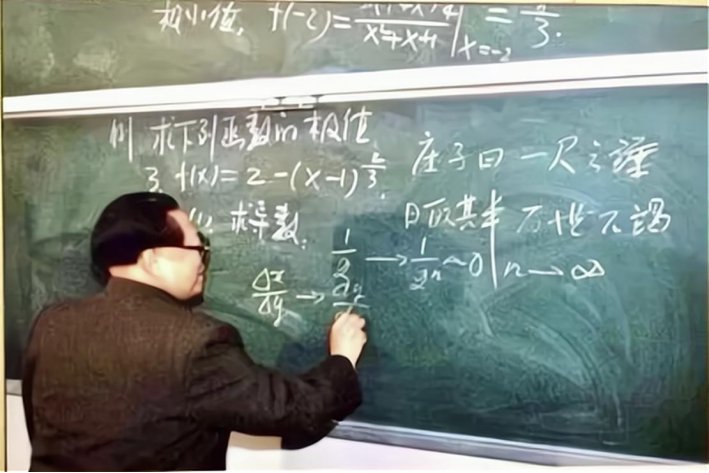 极小值, f(-2)= x²+x+1 | x=-2 = 3.
例 求下列函数的极值
3. f(x)=2-(x-1)^{2/3}.
(1). 求导数.
庄子曰 一尺之棰
日取其半 万世不竭
1/2 → 1/2ⁿ ~ 0 | n → ∞
Δx/Δy → dy